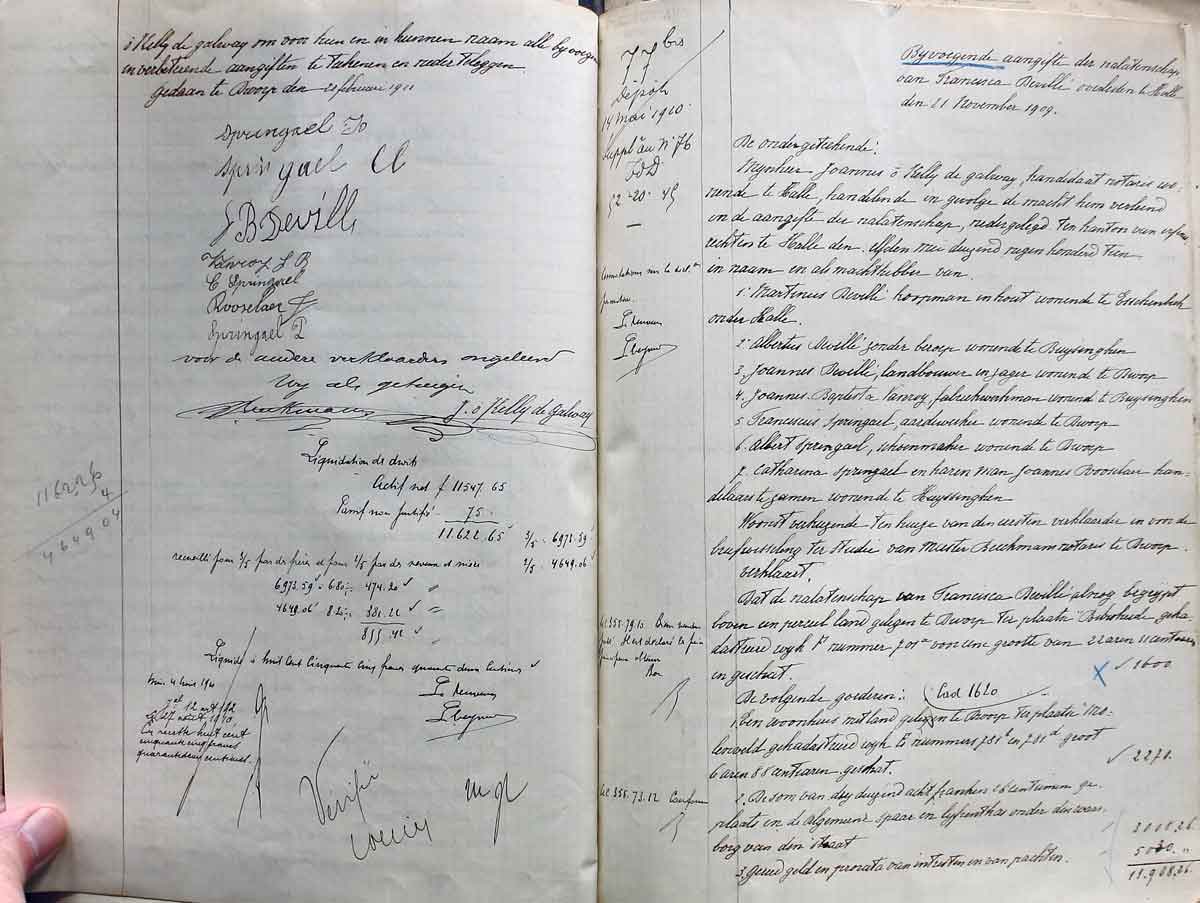 ó Kelly de galway om voor hun en in hunnen naam alle byvoegen
en verbeterende aangiften te teekenen en neder te leggen.
Gedaan te Dworp den 28 februari 1910
Springael Jo
Springael Cl
J B Devillé
Vanroy J. B
C Springael
Rooselaer J
Springael F
voor de andere verklaarders ongeleerd
Wy als getuigen
J. o Kelly de Galway
Liquidation des droits
Actif net f 11547.65
Passif non justifié 75
11.622.65 3/5 : 6973.59
recueilli pour 3/5 par des frères et pour 2/5 par des neveux et nièces 2/5 : 4649.06
6973.59 à 6.80 % 474.20
4649.06 8.20 % 381.22
855.42
Liquidé à huit cent cinquante cinq francs quarante deux centimes
Le Receveur
11622,6
4
4649 04
27 août 1910
En recette huit cent
cinquante cinq francs
quarante deux centimes.
Vérifié
77 bis
Dépôt
14 mai 1910
Suppl. au N° 76
52-20-45
Le Receveur
Byvoegende aangifte der nalatenschap
van Francisca Devillé overleden te Halle
den 21 November 1909.
De ondergeteekende:
Mynheer Joannes ó Kelly de galway, kandidaat notaris wo-
nende te Halle, handelende in gevolge de macht hem verleend
in de aangifte der nalatenschap, nedergelegd ten kantoor van erfenis
rechten te Halle den elfden mei duizend negen honderd tien
in naam en als machthebber van.
1. Martinus Devillé koopman in hout wonende te Esschenbeek
onder Halle.
2. Albertus Devillé zonder beroep wonende te Buysinghen
3. Joannes Devillé, landbouwer en jager wonende te Dworp
4. Joannes Baptista Vanroy, fabriekwerkman wonende te Buysinghen
5. Franciscus Springael, aardewerker wonende te Dworp
6. Albert Springael, schoenmaker wonende te Dworp
7. Catharina Springael en haren man Joannes Rooselaer han-
delaars te zamen wonende te Huyssinghen
Woonst verkiezende ten huize van den eersten verklaarder en voor de
briefwisseling ter studie van Meester Beeckmans notaris te Dworp.
verklaart.
Dat de nalatenschap van Francisca Devillé alnog begrypt
boven een perceel land gelegen te Dworp ter plaatse geka-
dastreerd wyk F nummer 701a voor eene grootte van 22 aren centiaren
en geschat. 1600
De volgende goederen: Cad 1620
1. Een woonhuis met land gelegen te Dworp ter plaatse Mo-
leveld gekadastreerd wyk E nummers 281 en 281d groot
6 aren 85 centiaren geschat. 2271.
Conforme
2. De som van dry duizend acht franken 26 centiemen ge-
plaats in de Algemeene spaar en lyfrentkas onder den waar-
borg van den staat 3008.26
3. Gereed geld en prorata van intresten en van pachten. 5030 "
11.908.26.